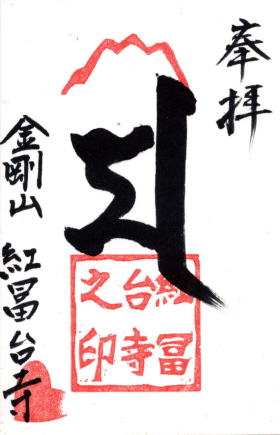 奉拝
金剛山 紅冨台寺
紅冨
台寺
之印